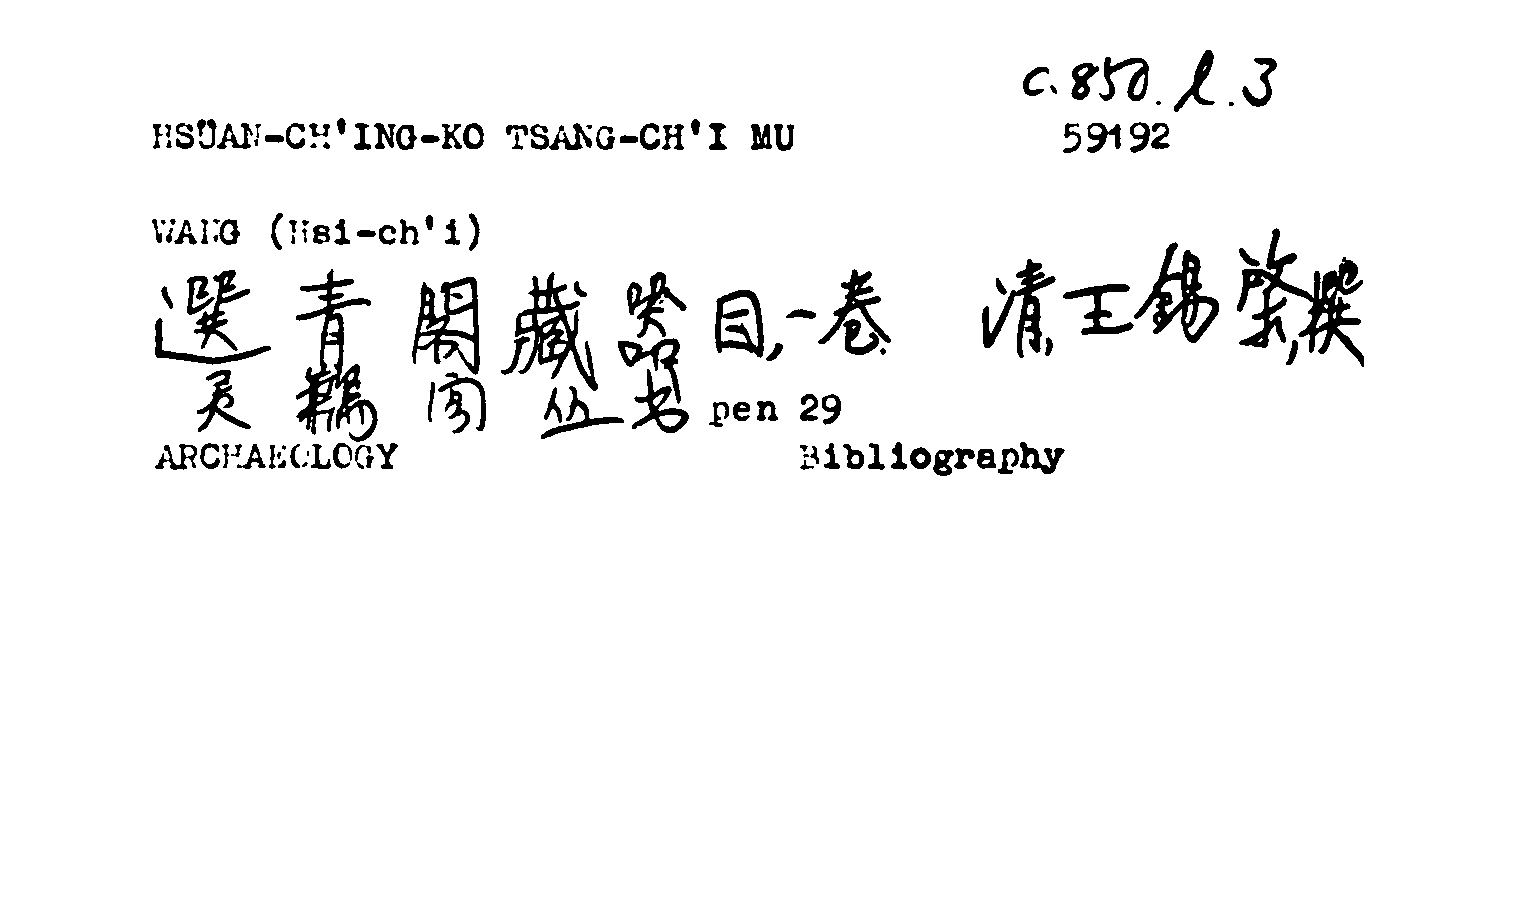 c.850.l.3
HSÜAN-CH'ING-KO TSANG-CH'I MU 59192
WANG (Hsi-ch'i)
選青閣藏器目,一卷 清,王錫棨,撰
灵鶼阁丛书 pen 29
ARCHAEOLOGY Bibliography